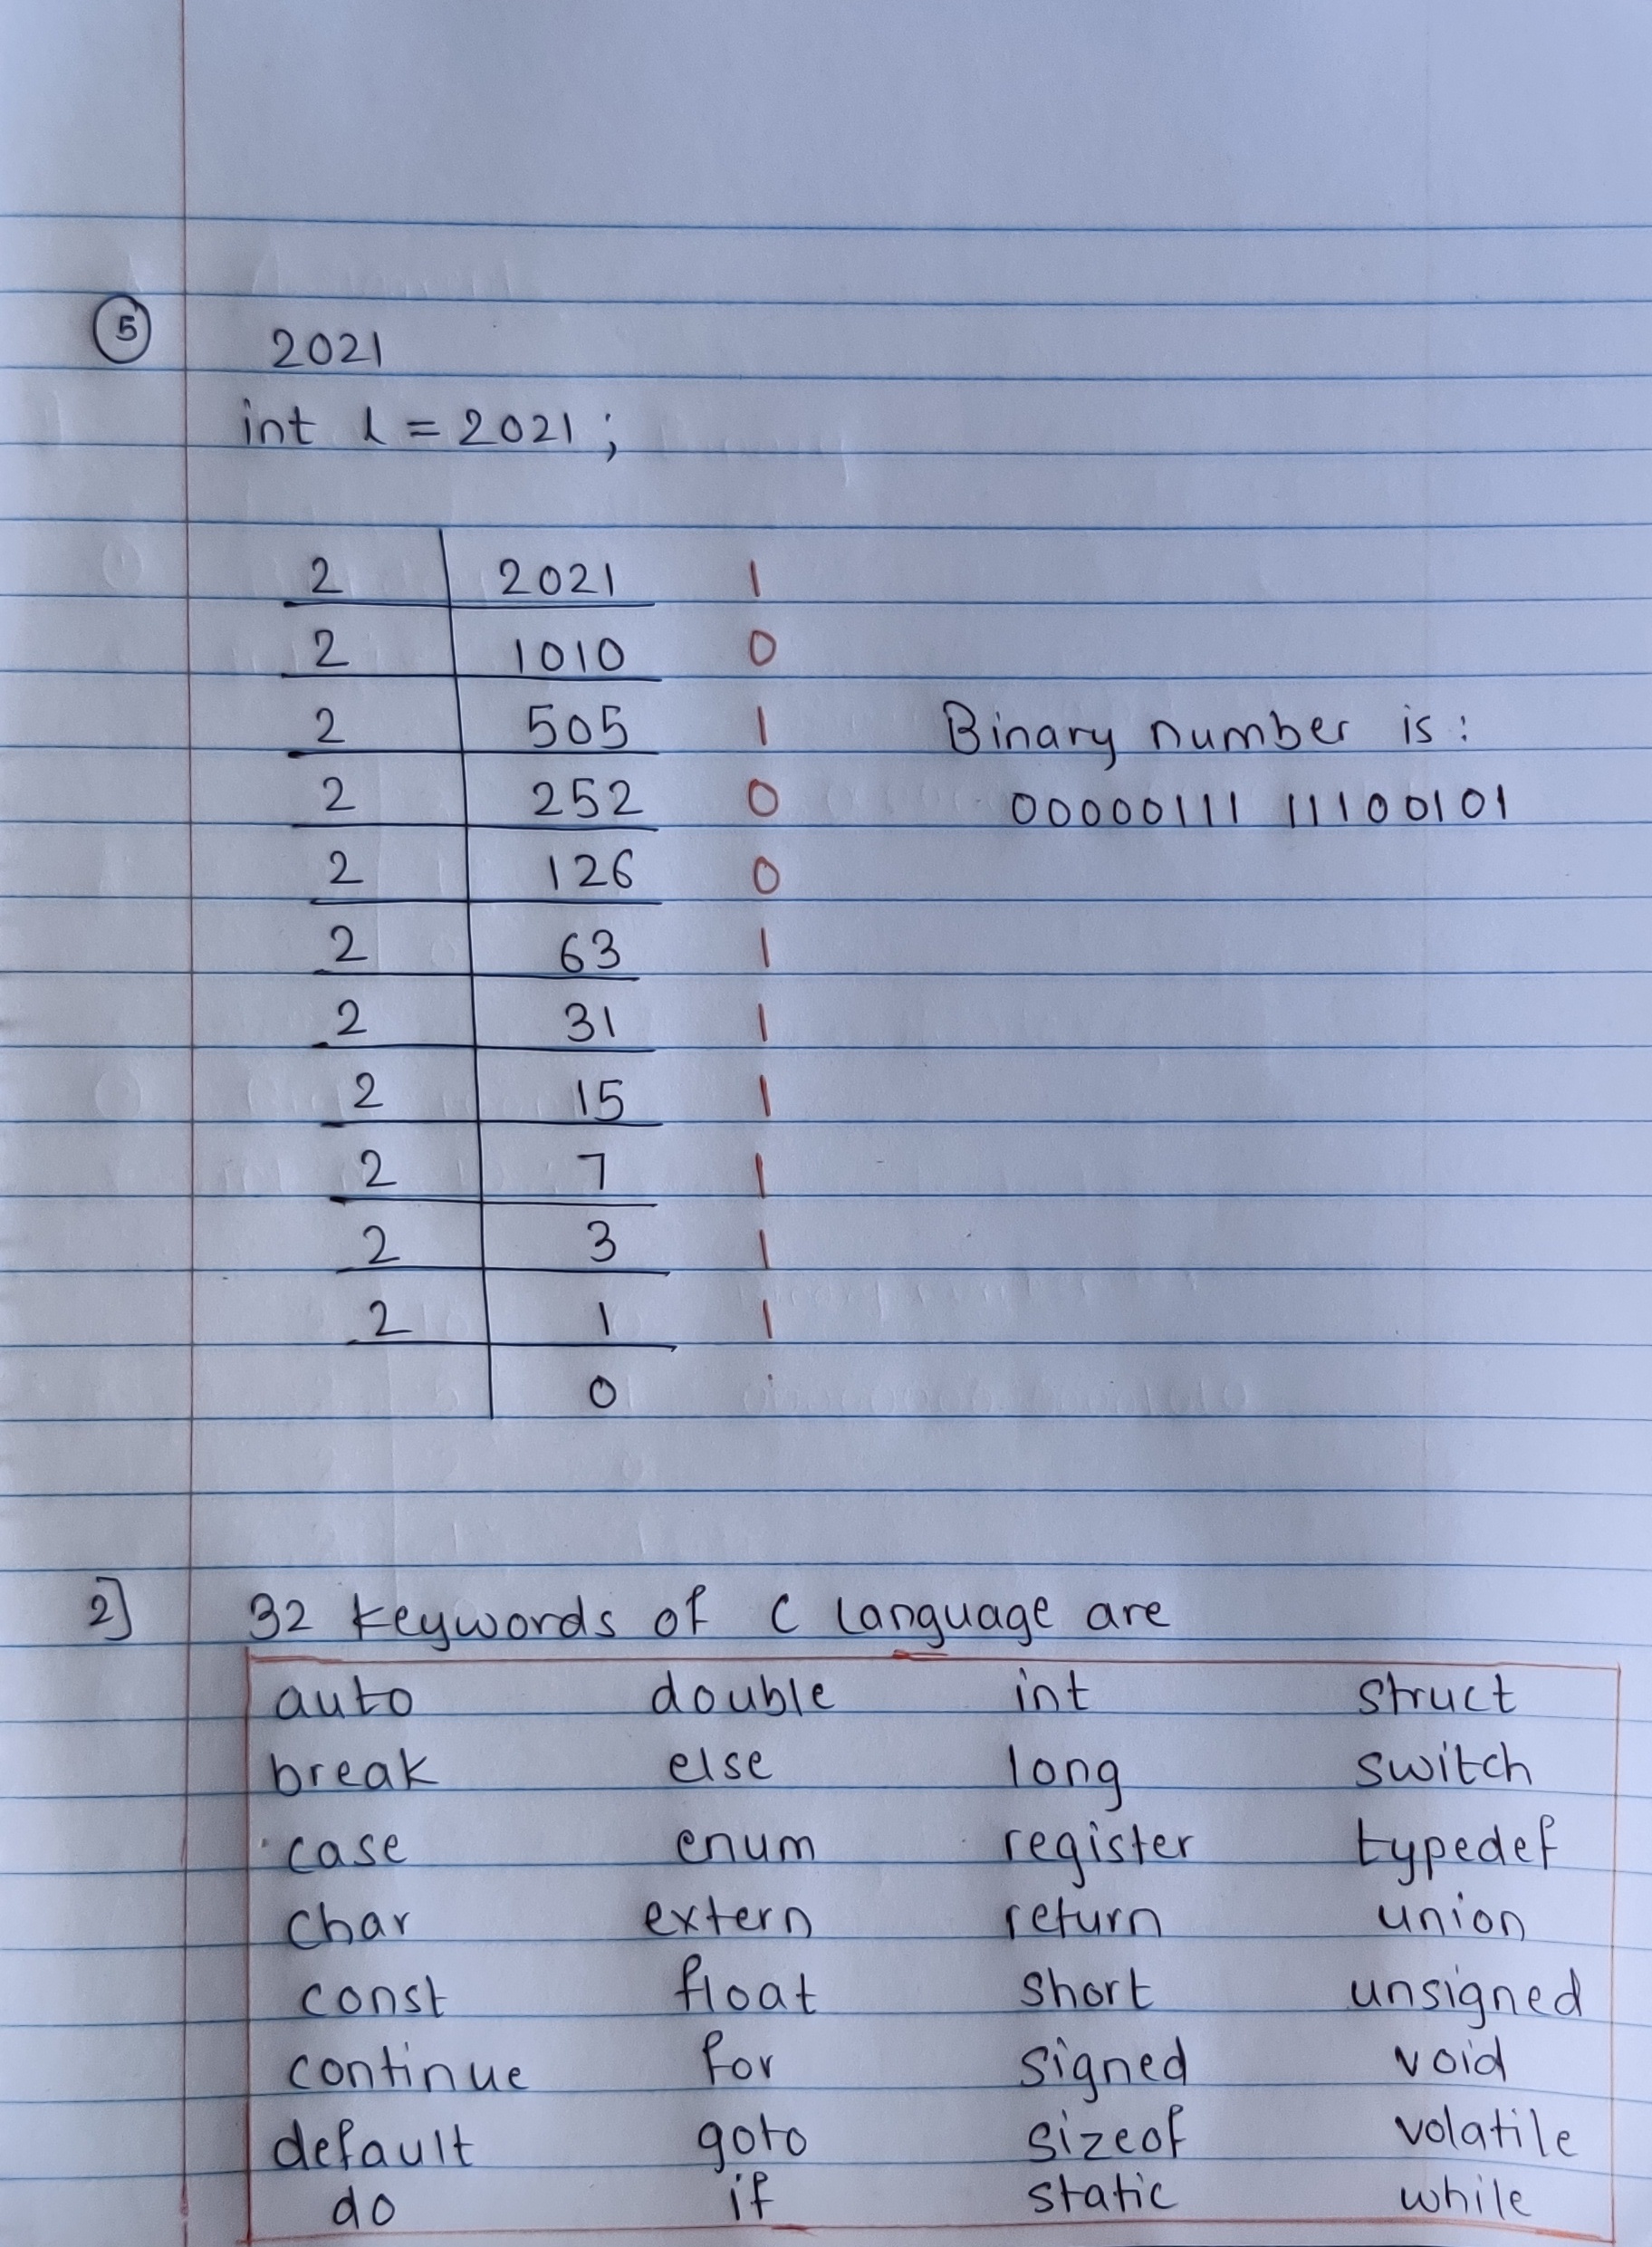 5 2021
int i = 2021 ;
2 2021 1
2 1010 0
2 505 1
2 252 0
2 126 0
2 63 1
2 31 1
2 15 1
2 7 1
2 3 1
2 1 1
0
Binary number is :
00000111 11100101
2] 32 keywords of C language are
auto double int struct
break else long switch
case enum register typedef
char extern return union
const float short unsigned
continue for signed void
default goto sizeof volatile
do if static while